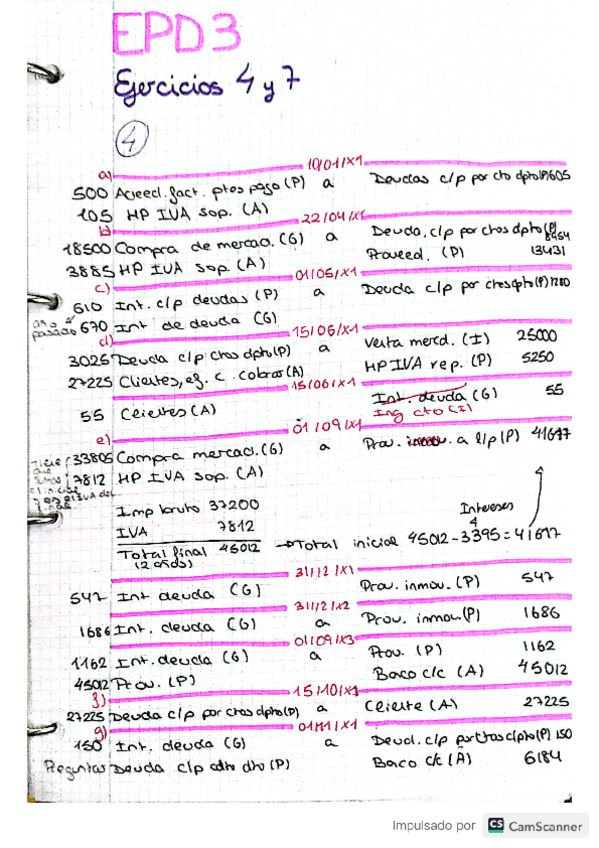 EPD3
Ejercicios 4 y 7
4
a) 10/01/X1
500 Acreed. fact. ptes pago (P) a Deudas c/p por cto dpto (P) 605
105 HP IVA sop. (A)
b) 22/04/X1
18500 Compra de mercad. (G) a Deuda. c/p por ctos dpto (P) 8954
3885 HP IVA sop. (A) Proveed. (P) 13431
c) 01/05/X1
610 Int. c/p deudas (P) a Deuda c/p por ctos dpto (P) 1280
año pasado 670 Int de deuda (G)
d) 15/06/X1
3025 Deuda c/p ctos dpto (P) a Venta merd. (I) 25000
27225 Clientes, ef. c. cobrar (A) HP IVA rep. (P) 5250
15/06/X1
55 Clientes (A) Int. deuda (G) 55
Ing cto (I)
e) 01/09/X1
33805 Compra mercad. (G) a Prov. inmov. a l/p (P) 41617
7812 HP IVA sop. (A)
Imp bruto 37200
IVA 7812
Intereses
Total final 45012 → Total inicial 45012 - 3395 = 41617
(2 años)
31/12/X1
547 Int deuda (G) Prov. inmov. (P) 547
31/12/X2
1686 Int. deuda (G) a Prov. inmov. (P) 1686
01/09/X3
1162 Int. deuda (G) a Prov. (P) 1162
45012 Prov. (P) Banco c/c (A) 45012
f) 15/10/X1
27225 Deuda c/p por ctos dpto (P) a Cliente (A) 27225
g) 01/11/X1
150 Int. deuda (G) a Deud. c/p por ctos dpto (P) 150
Preguntar Deuda c/p cdto dto (P) Banco c/c (A) 6184
Impulsado por CS CamScanner